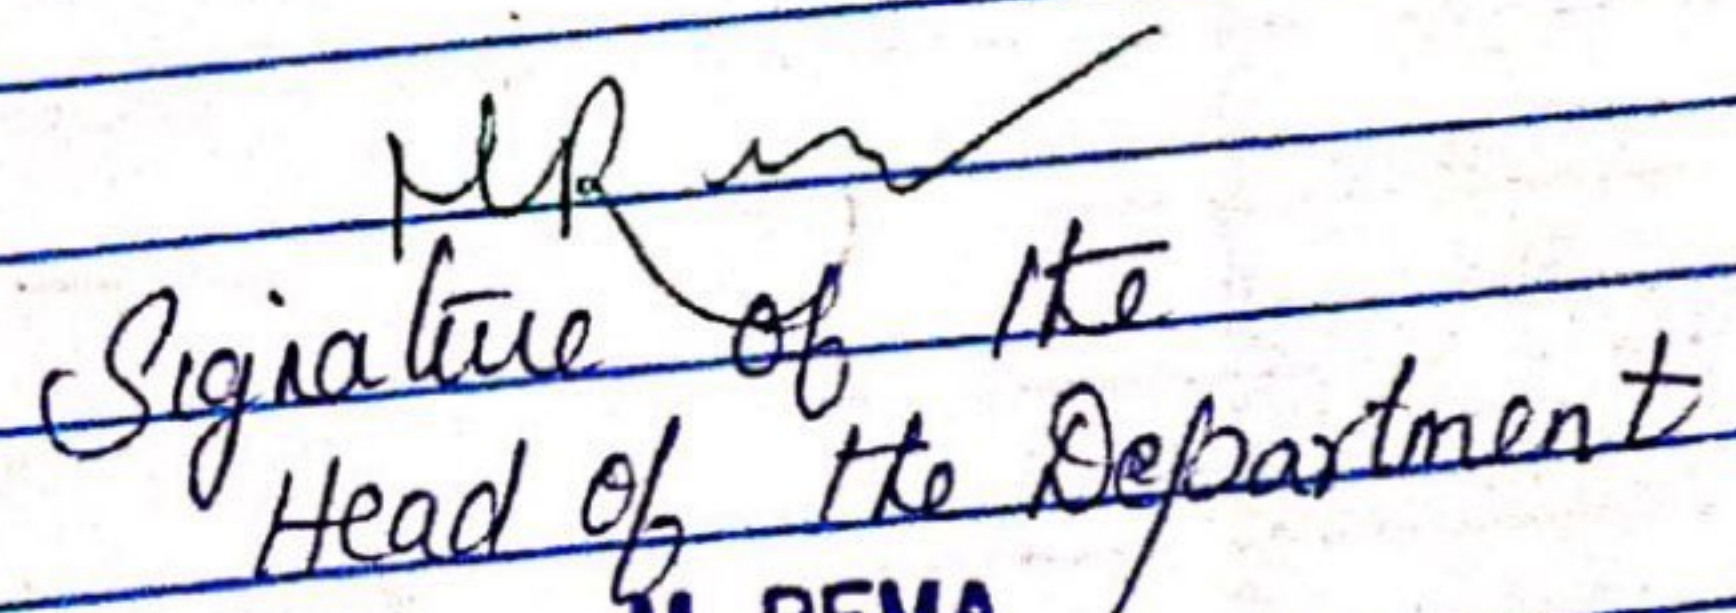 Signature of the
Head of the Department
M. REMA